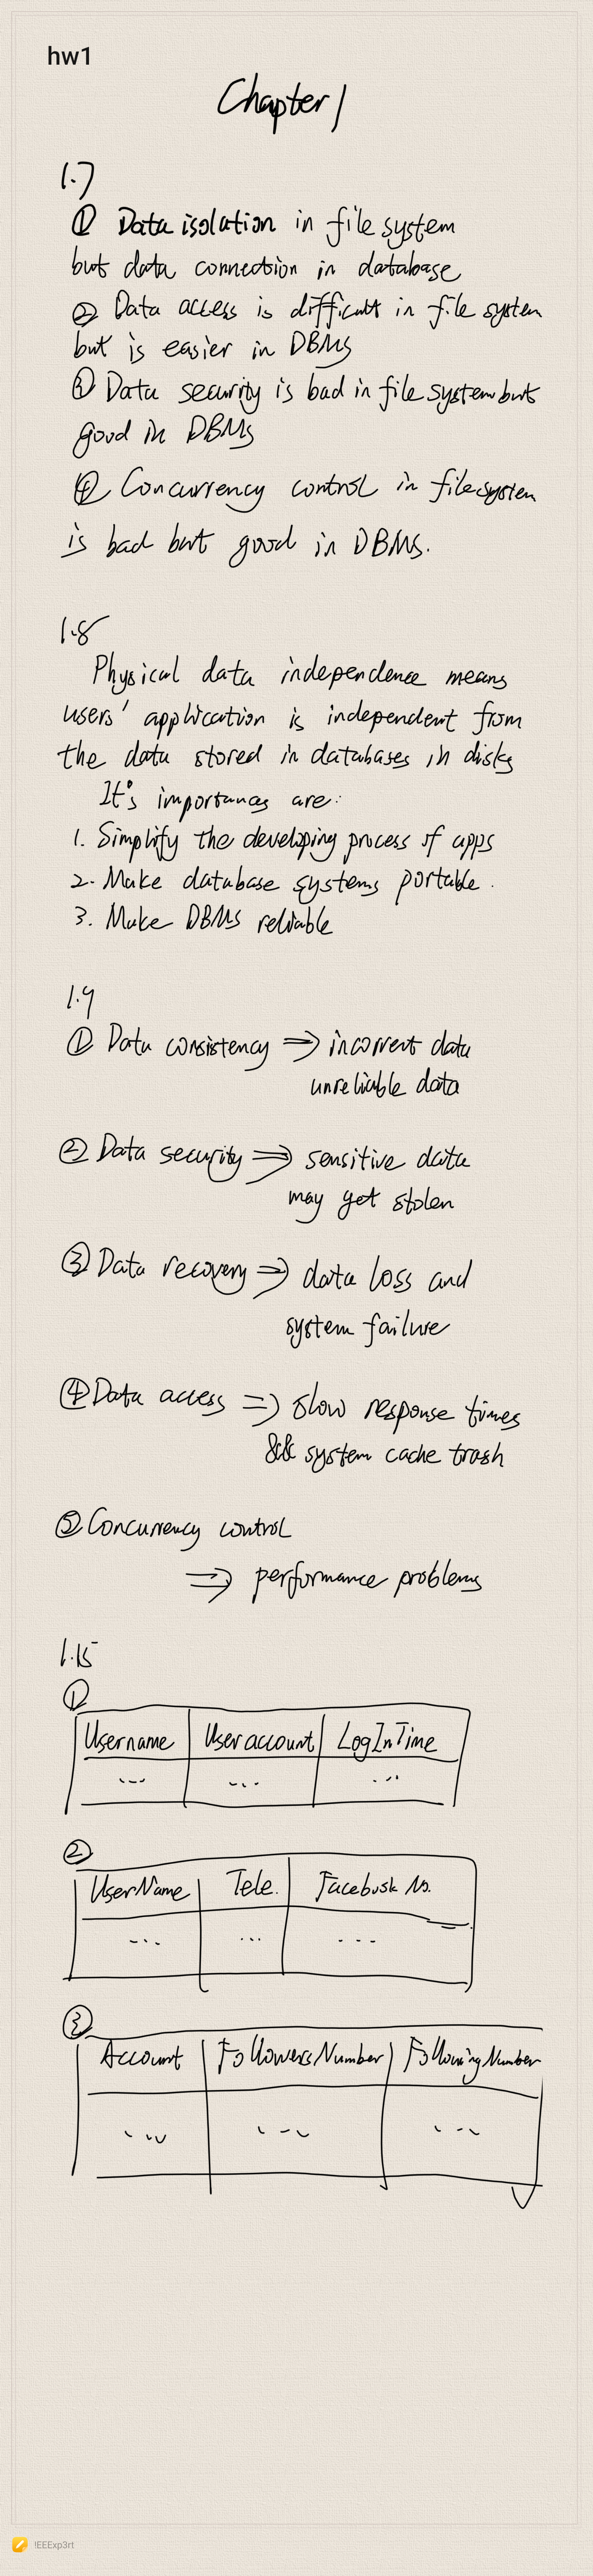 hw1
Chapter 1
1.7
① Data isolation in file system
but data connection in database
② Data access is difficult in file system
but is easier in DBMS
③ Data security is bad in file system but
good in DBMS
④ Concurrency control in file system
is bad but good in DBMS.
1.8
Physical data independence means
users' application is independent from
the data stored in databases in disks
It's importances are:
1. Simplify the developing process of apps
2. Make database systems portable.
3. Make DBMS reliable
1.9
① Data consistency ⇒ incorrect data
unreliable data
② Data security ⇒ sensitive data
may get stolen
③ Data recovery ⇒ data loss and
system failure
④ Data access ⇒ slow response times
&& system cache trash
⑤ Concurrency control
⇒ performance problems
1.15
①
Username User account LogInTime
... ... ...
②
UserName Tele. Facebook No.
... ... ...
③
Account FollowersNumber FollowingNumber
... ... ...
!EEExp3rt